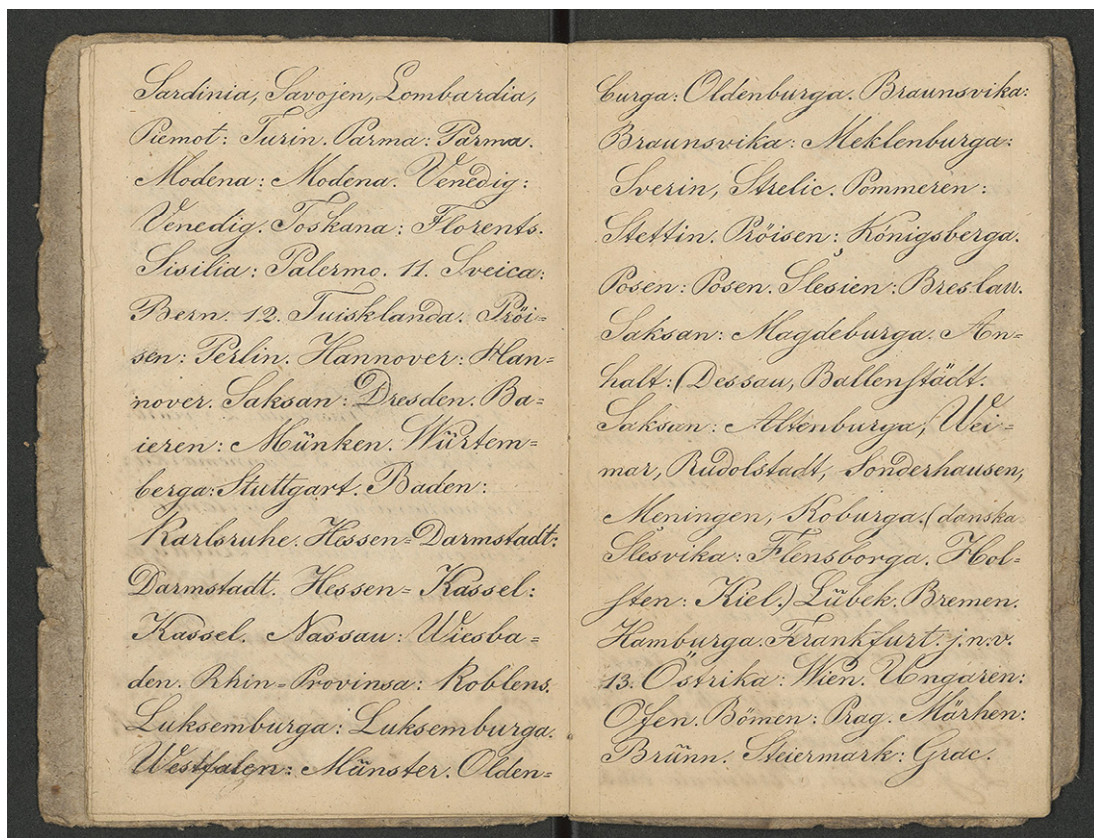 Sardinia, Savojen, Lombardia,
Piemot: Turin. Parma: Parma.
Modena: Modena. Venedig:
Venedig. Toskana: Florents.
Sisilia: Palermo. 11. Sveica:
Bern. 12. Tuisklanda. Pröi-
sen: Perlin. Hannover: Han=
nover. Saksan: Dresden. Ba=
ieren: Münken. Würtem=
berga: Stuttgart. Baden:
Karlsruhe. Hessen=Darmstadt:
Darmstadt. Hessen= Kassel:
Kassel. Nassau: Wiesba=
den. Rhin=Provinsa: Koblens.
Luksemburga: Luksemburga.
Westfalen: Münster. Olden=
burga: Oldenburga. Braunsvika:
Braunsvika: Meklenburga:
Sverin, Strelic. Pommeren:
Stettin. Pröisen: Königsberga.
Posen: Posen. Slesien: Breslau.
Saksan: Magdeburga. An=
halt: (Dessau, Ballenstädt.
Saksan: Altenburga, (Wei-
mar, Rudolstadt, Sonderhausen,
Meningen, Koburga. (danska
Slesvika: Flensborga. Hol-
sten: Kiel.) Lübek. Bremen.
Hamburga. Frankfurt. j.n.v.
13. Östrika: Wien. Ungaren:
Ofen. Bömen: Prag. Märhen:
Brünn. Steiermark: Grac.